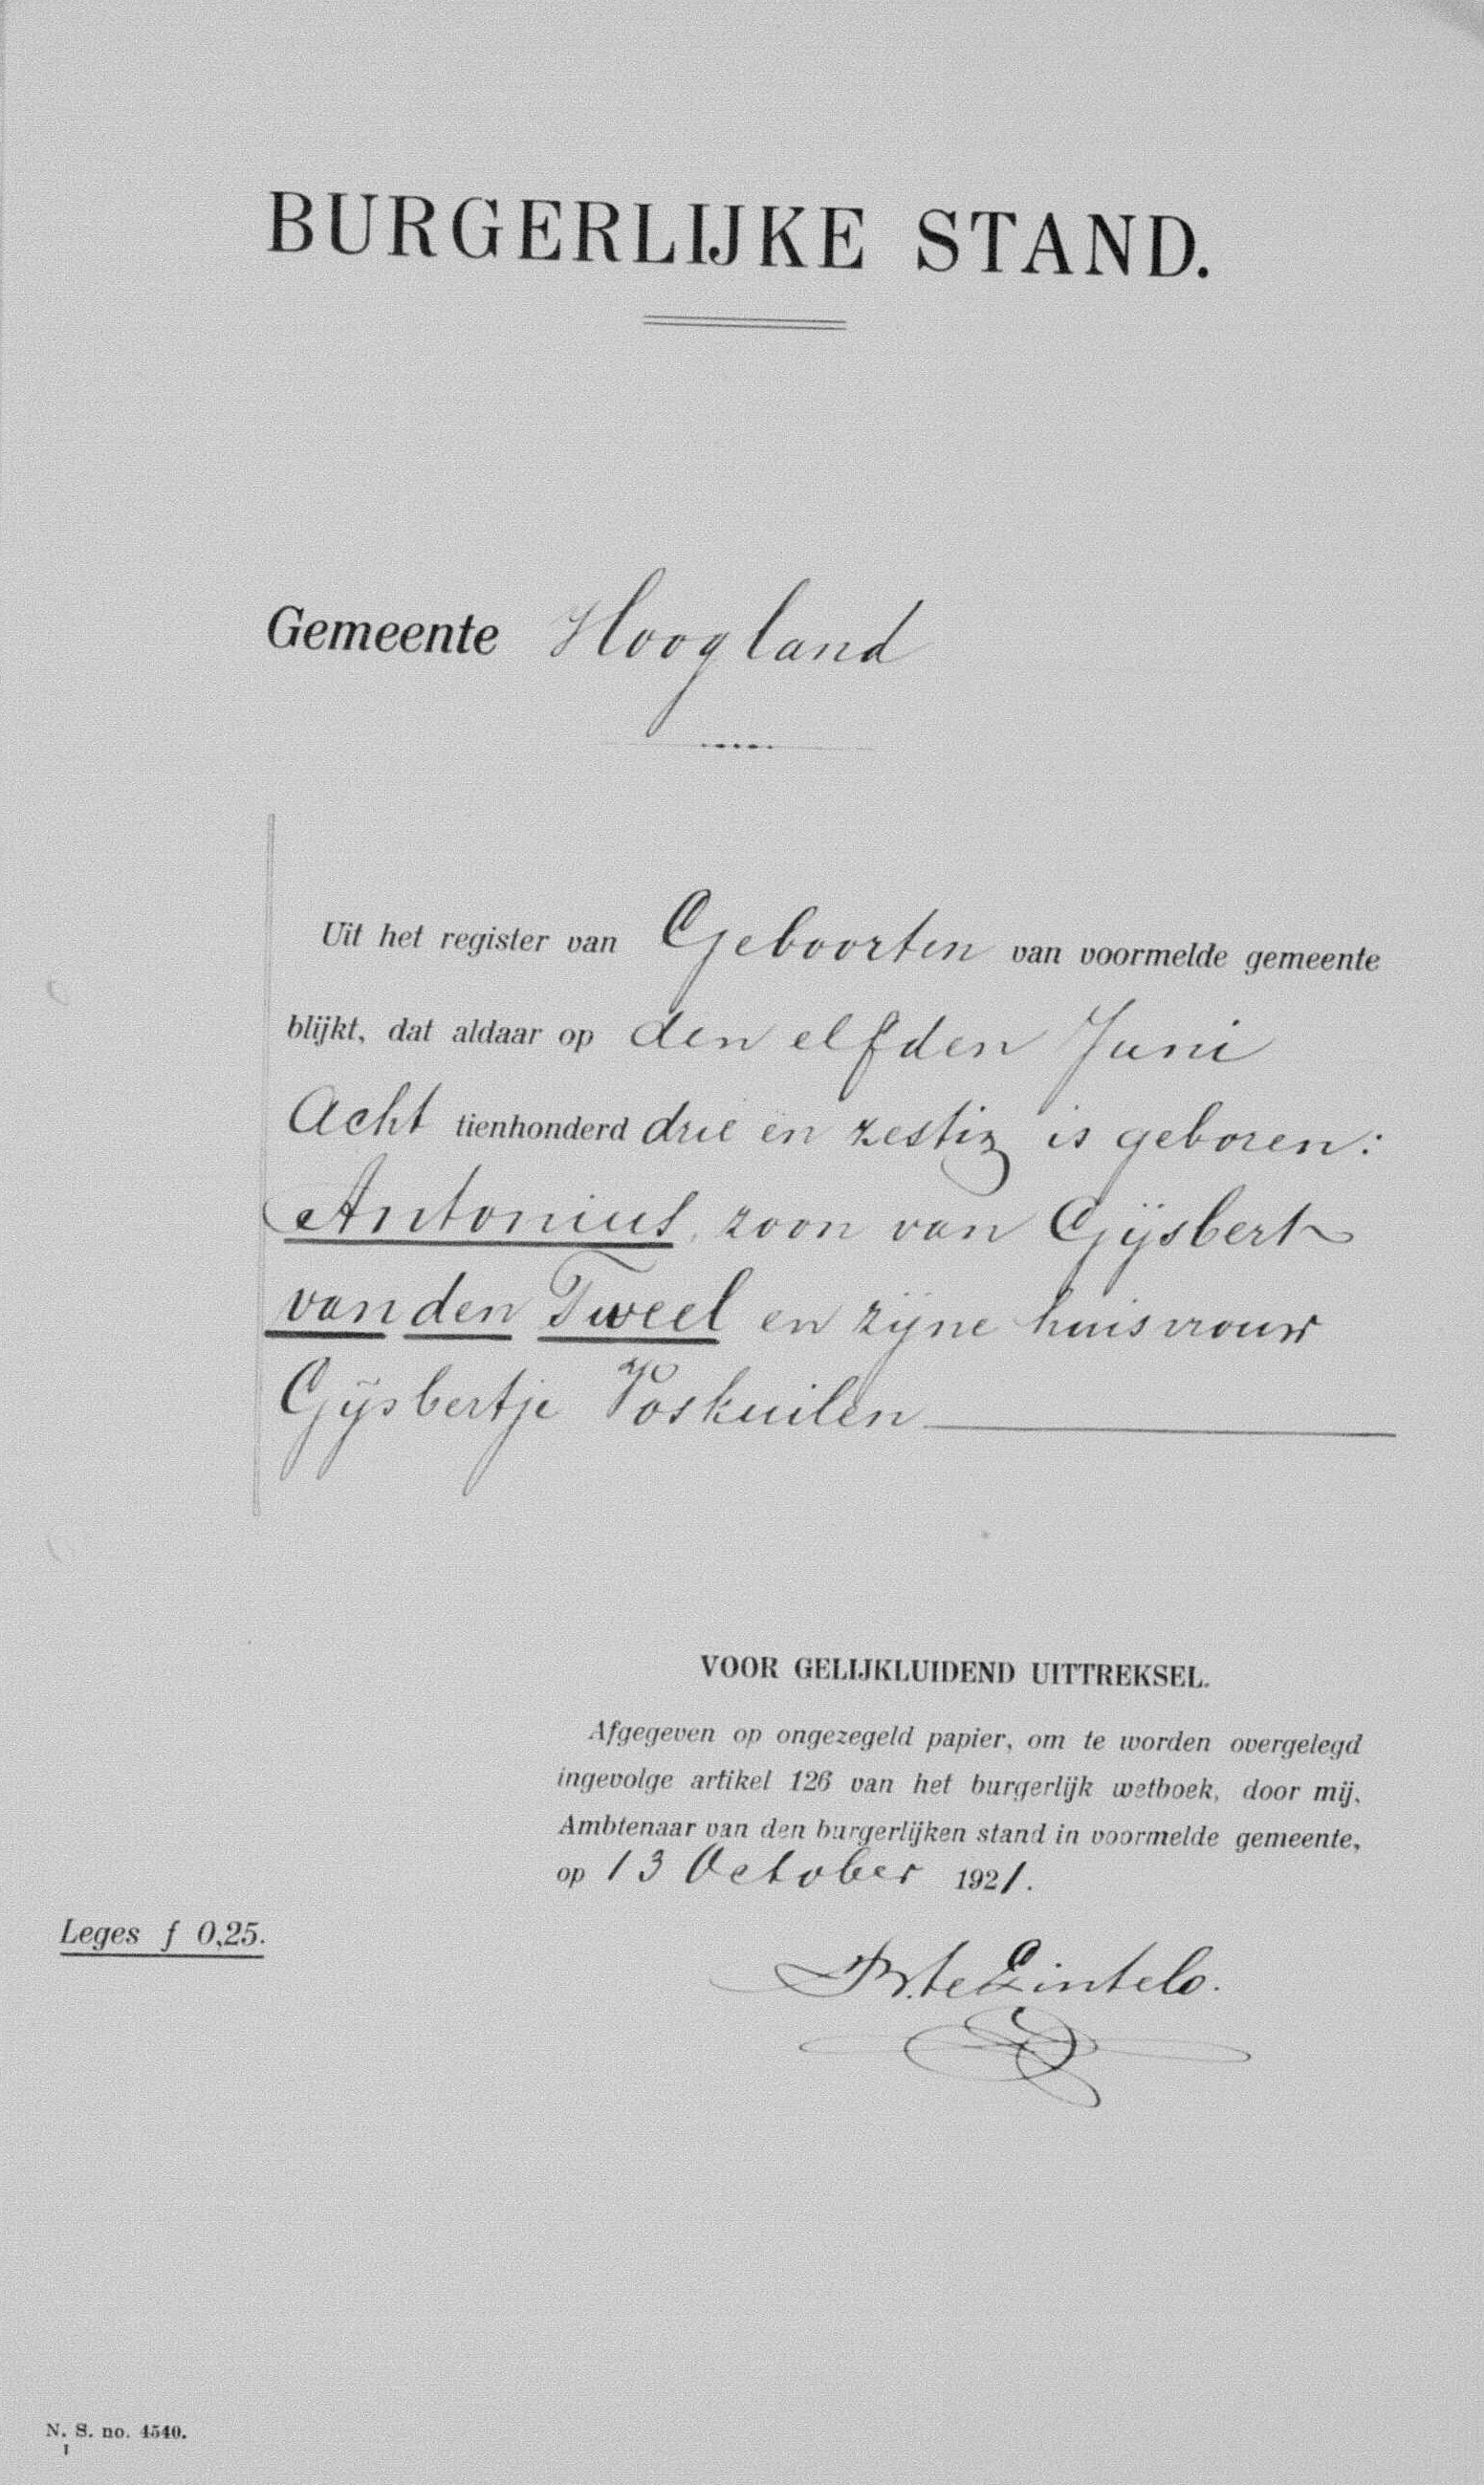 BURGERLIJKE STAND.
Gemeente Hoogland
Uit het register van Geboorten van voormelde gemeente
blijkt, dat aldaar op den elfden Juni
Acht tienhonderd drie en zestig is geboren:
Antonius, zoon van Gijsbert
van den Tweel en zijne huisvrouw
Gijsbertje Voskuilen
VOOR GELIJKLUIDEND UITTREKSEL.
Afgegeven op ongezegeld papier, om te worden overgelegd
ingevolge artikel 126 van het burgerlijk wetboek, door mij,
Ambtenaar van den burgerlijken stand in voormelde gemeente,
op 13 October 1921.
Leges f 0,25.
te Lintelo.
N. S. no. 4540.
1